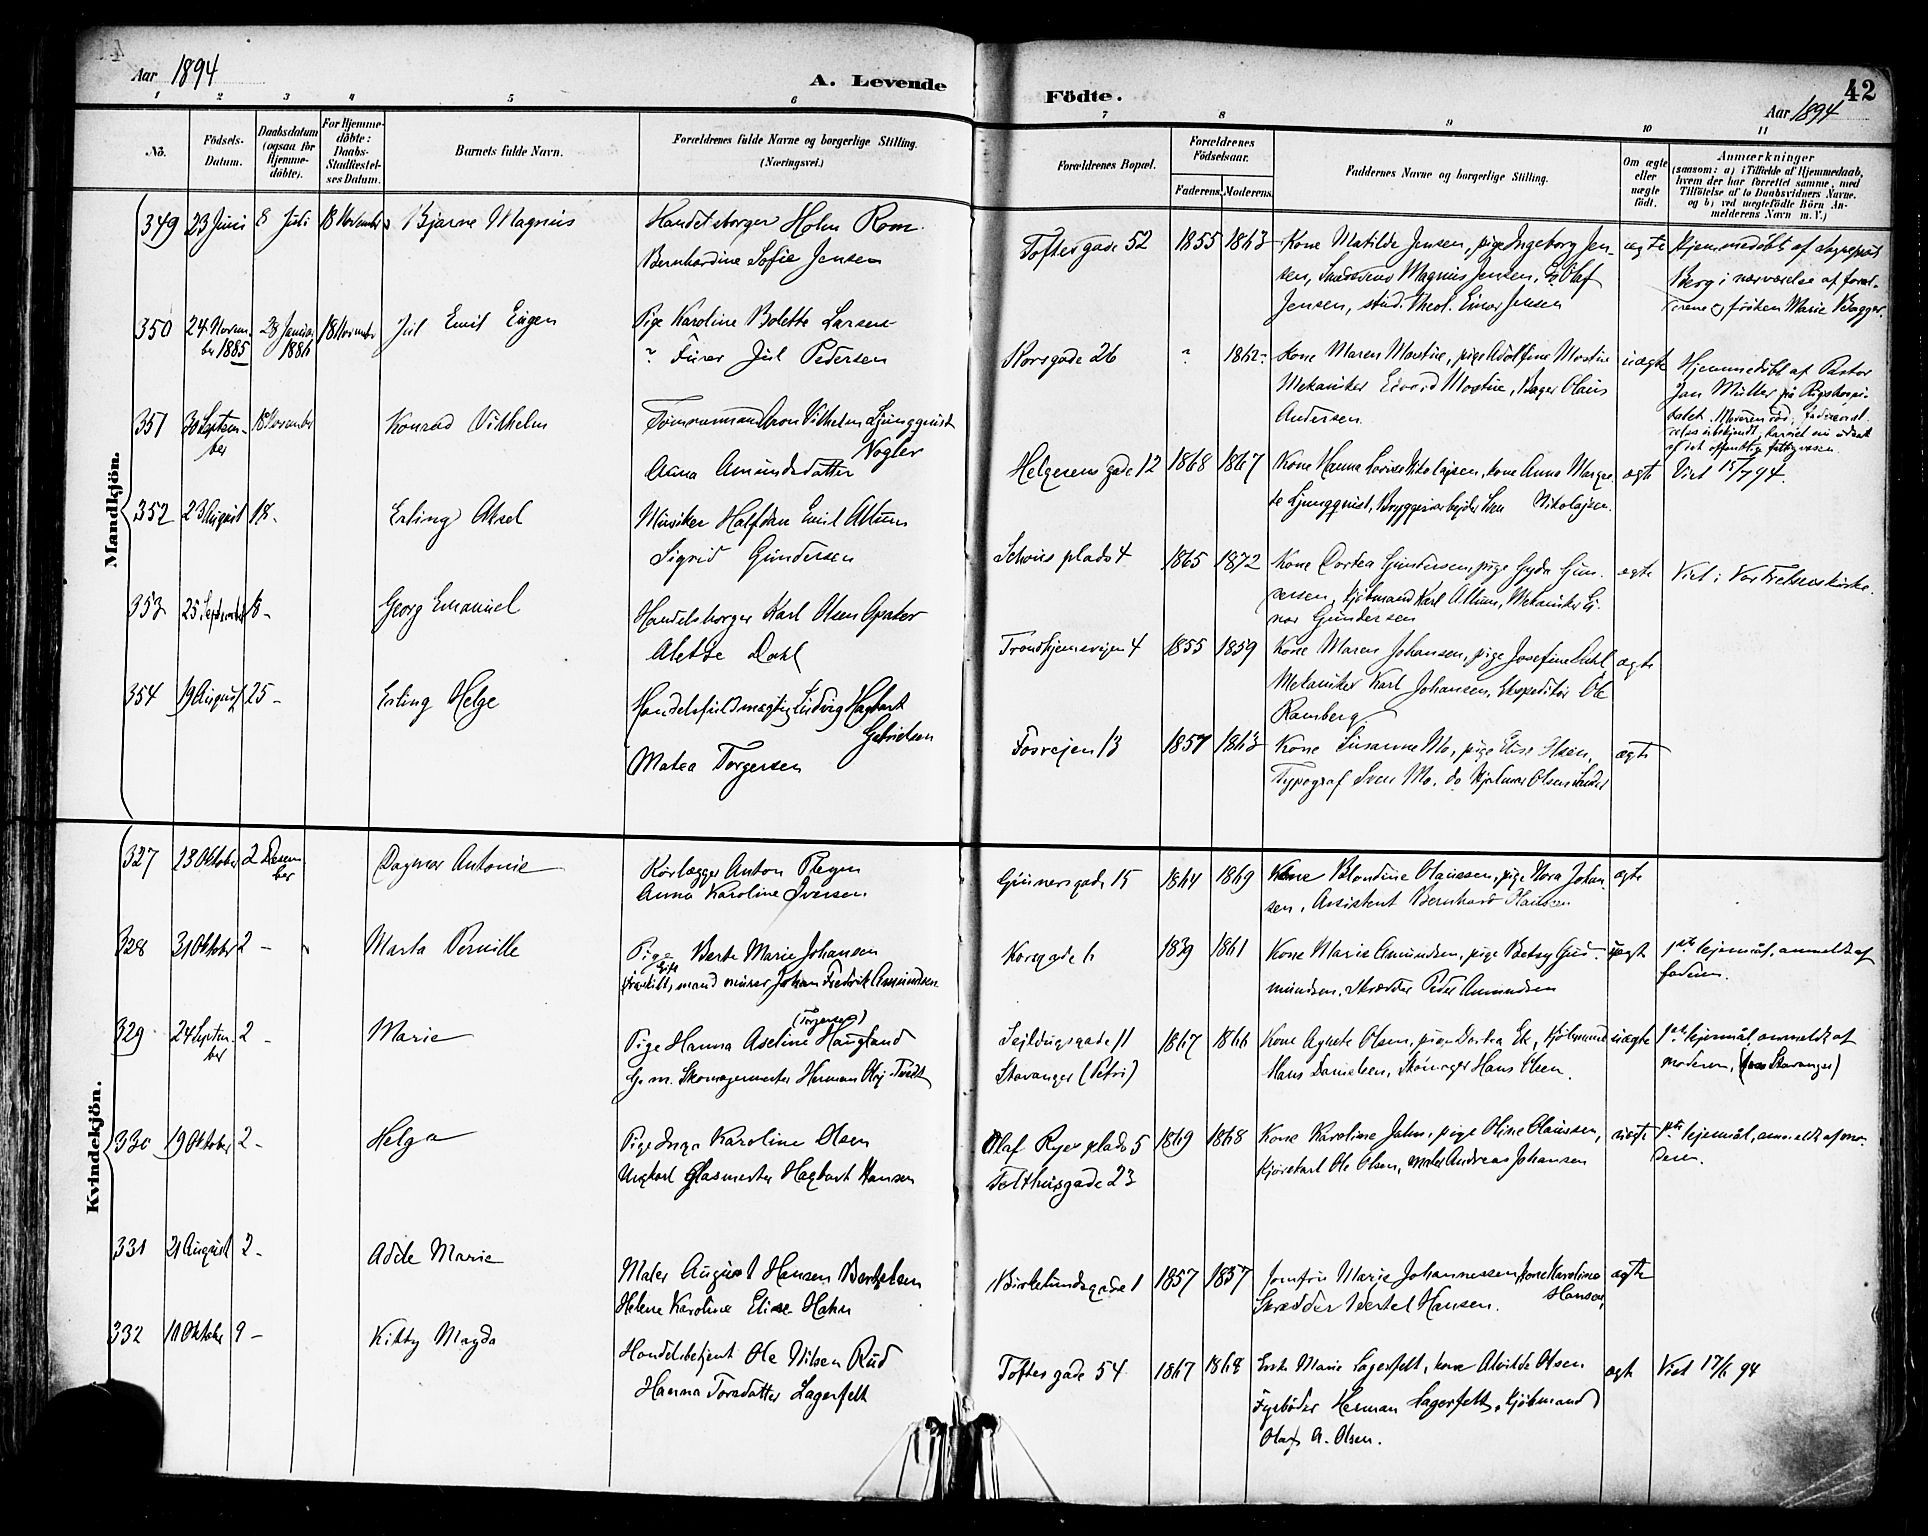 Aar 1894
A. Levende Födte.
42
Aar 1894
1 2 3 4 5 6 7 8 9 10 11
No.
Födsels-Datum.
Daabsdatum (ogsaa for Hjemmedöbte).
For Hjemmedöbte: Daabs-Stadfæstelses Datum.
Barnets fulde Navn.
Forældrenes fulde Navne og borgerlige Stilling. (Næringsvei.)
Forældrenes Bopæl.
Forældrenes Födselsaar.
Faderens. Moderens.
Faddernes Navne og borgerlige Stilling.
Om ægte eller uægte födt.
Anmærkninger
(saasom: a) i Tilfælde af Hjemmedaab, hvem der har forrettet samme, med Tilföielse af to Daabsvidners Navne. og b) ved uegtefödte Börn Anmelderens Navn m. V.)
Mandkjön.
349 23 Juni 8 Juli 18 November Bjarne Magnus
Handelsborger Holm Rom
Bernhardine Sofie Jensen
Toftesgade 52 1855 1863
Kone Matilde Jensen, pige Ingeborg Jen-
sen, Magnus Jensen, Olaf
Jensen, stud. theol. Einar Jensen
ægte
Hjemmedöbt af
Berg i nærværelse af foræl-
drene og fröken Marie Bagger.
350 24 Novem-
ber 1885 23 Januar
1886 18 November Jul Emil Eugen
Pige Karoline Bolette Larsen
? Furer Jul Pedersen
Korsgade 26 ? 1862
Kone Maren Mostue, pige Adolfine Mostue
Mekaniker Edvard Mostue, Bager Olaus
Andersen
uægte
Hjemmedöbt af Pastor
Jan Müller på Rigshospi-
talet.
af det offentlige fattigvesen.
351 30 Septem-
ber 18 November Konrad Vilhelm
Tömmermand Aron Vilhelm Ljungqquist
Nogler
Anna Amundsdatter
Helgesens gade 12 1868 1867
Kone Hanna Lovise Nikolajsen, kone Anna Margre-
te Ljungqquist, Bryggeriarbejder Nikolajsen.
ægte
Viet 15/7 94.
352 23 August 18 - Erling Aksel
Musiker Halfdan Emil Altum
Sigrid Gundersen
Schous plads 4 1865 1872
Kone Dortea Gundersen, pige Gyda Gun-
dersen, Kjöbmand Karl Altum, Mekaniker Ej-
nar Gundersen
ægte
Viet i Vor Frelsers kirke.
353 25 September 18 - Georg Emanuel
Handelsborger Karl Olsen
Alette Dahl
Trondhjemsvejen 4 1855 1859
Kone Maren Johansen, pige Josefine Dahl
Mekaniker Karl Johansen, Ekspeditör Ole
Ramberg
ægte
354 19 August 25 - Erling Helge
Handelsfuldmægtig Ludvig Hagbart
Gabrielsen
Matea Torgersen
Fosvejen 13 1857 1863
Kone Susanne Mo, pige Elise Olsen,
Typograf Sven Mo, do Hjalmar Olsen
ægte
Kvindekjön.
327 23 Oktober 2 Decem-
ber Dagmar Antonie
Rörlægger Anton
Anna Karoline Iversen
Grünersgade 15 1864 1869
Kone Blondine Olaussen, pige Nora Johan-
sen, Assistent Bernhard
ægte
328 31 Oktober 2 - Marta Pernille
Pige Berte Marie Johansen
Gift
Fraskilt, mand murer Johan Fredrik Amundsen
Korsgade 6 1839 1861
Kone Marie Amundsen, pige Betsy Gud-
mundsen, Skrædder Peder Amundsen
uægte
1ste lejermål, anmeldt af
faderen.
329 24 Septem-
ber 2 - Marie
(Torgersen)
Pige Hanna Aseline Haugland
G. m. Skomagermester Herman Tvedt
Sejldugsgade 11
Stavanger (Petri) 1867 1866
Kone Agnete Olsen, pige Dortea Ek, Kjöbmand
Hans Danielsen, Skomager Hans Olsen.
uægte
1ste lejermål anmeldt af
moderen, (Stavanger)
330 19 Oktober 2 - Helga
Pige Inga Karoline Olsen
Ungkarl Glasmester Hagbart Hansen
Olaf Ryes plads 5
Telthusgade 23 1869 1868
Kone Karoline Jahn, pige Oline Olaussen,
Kjörekarl Ole Olsen, maler Andreas Johansen
uægte
1ste lejermål, anmeldt af mo-
deren.
331 21 August 2 - Adele Marie
Maler August Hansen Bertelsen
Helene Karoline Elise Hahn
Birkelundsgade 1 1857 1857
Jomfru Marie Johannessen, kone Karoline
Hansen,
Skrædder Bertel Hansen.
ægte
332 11 Oktober 9 - Kitty Magda
Handelsbetjent Ole Nilsen Rud
Hanna Torsdatter Lagerfelt
Toftesgade 54 1867 1868
Enke Marie Lagerfelt, kone Alvilde Olsen
Fyrböder Herman Lagerfelt, Kjöbmand
Olaf A. Olsen.
ægte
Viet 17/6 94